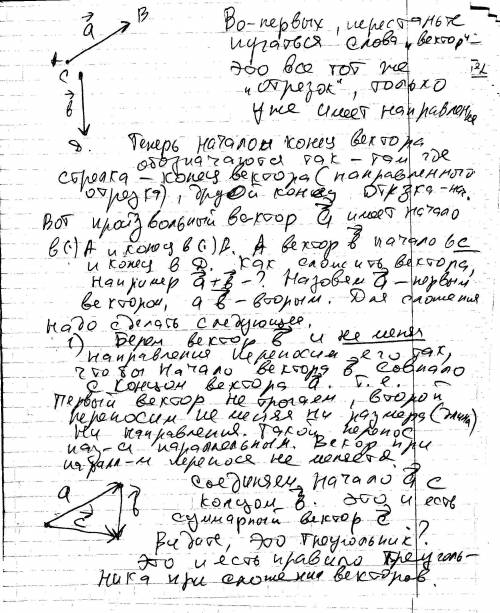 a B
A
C
b
D.
Во-первых, перестаньте
пугаться слова „вектор"-
это все тот же
„отрезок", только
уже имеет направление
Теперь начало и конец вектора
обозначаются так - там где
стрелка - конец вектора (направленного
отрезка), другой конец отрезка - на.
Вот произвольный вектор a имеет начало
в (·) A и конец в (·) B. А вектор b начало в C
и конец в D. Как сложить вектора,
например a+b-? Назовем a - первый
вектором, а b - вторым. Для сложения
надо сделать следующее.
1) Берем вектор b и не меняя
направления переносим его так,
чтобы начало вектора b совпало
с концом вектора a. Т.е.
первый вектор не трогаем, второй
переносим не меняя ни размера (длина)
ни направления. Такой перенос
наз-ся параллельным. Вектор при
переносе не меняется.
соединяем начало a с
концом b. Это и есть
суммарный вектор c
Видите, это треугольник?
Это и есть правило треуголь-
ника при сложении векторов.
a
b
c